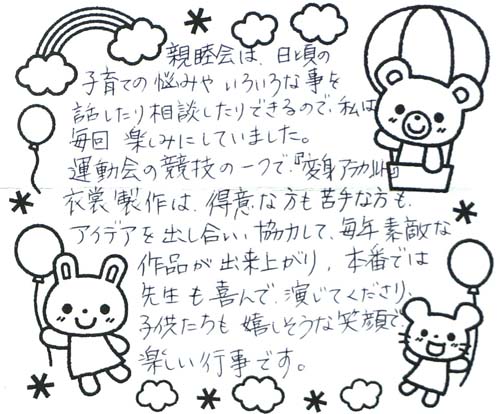 親睦会は、日頃の
子育ての悩みや いろいろな事を
話したり相談したりできるので、私は
毎回 楽しみにしていました。
運動会の競技の一つで、『変身アラカルト』
衣裳製作は、得意な方も苦手な方も、
アイデアを出し合い、協力して、毎年素敵な
作品が出来上がり、本番では
先生も喜んで、演じてくださり、
子供たちも 嬉しそうな笑顔で、
楽しい行事です。